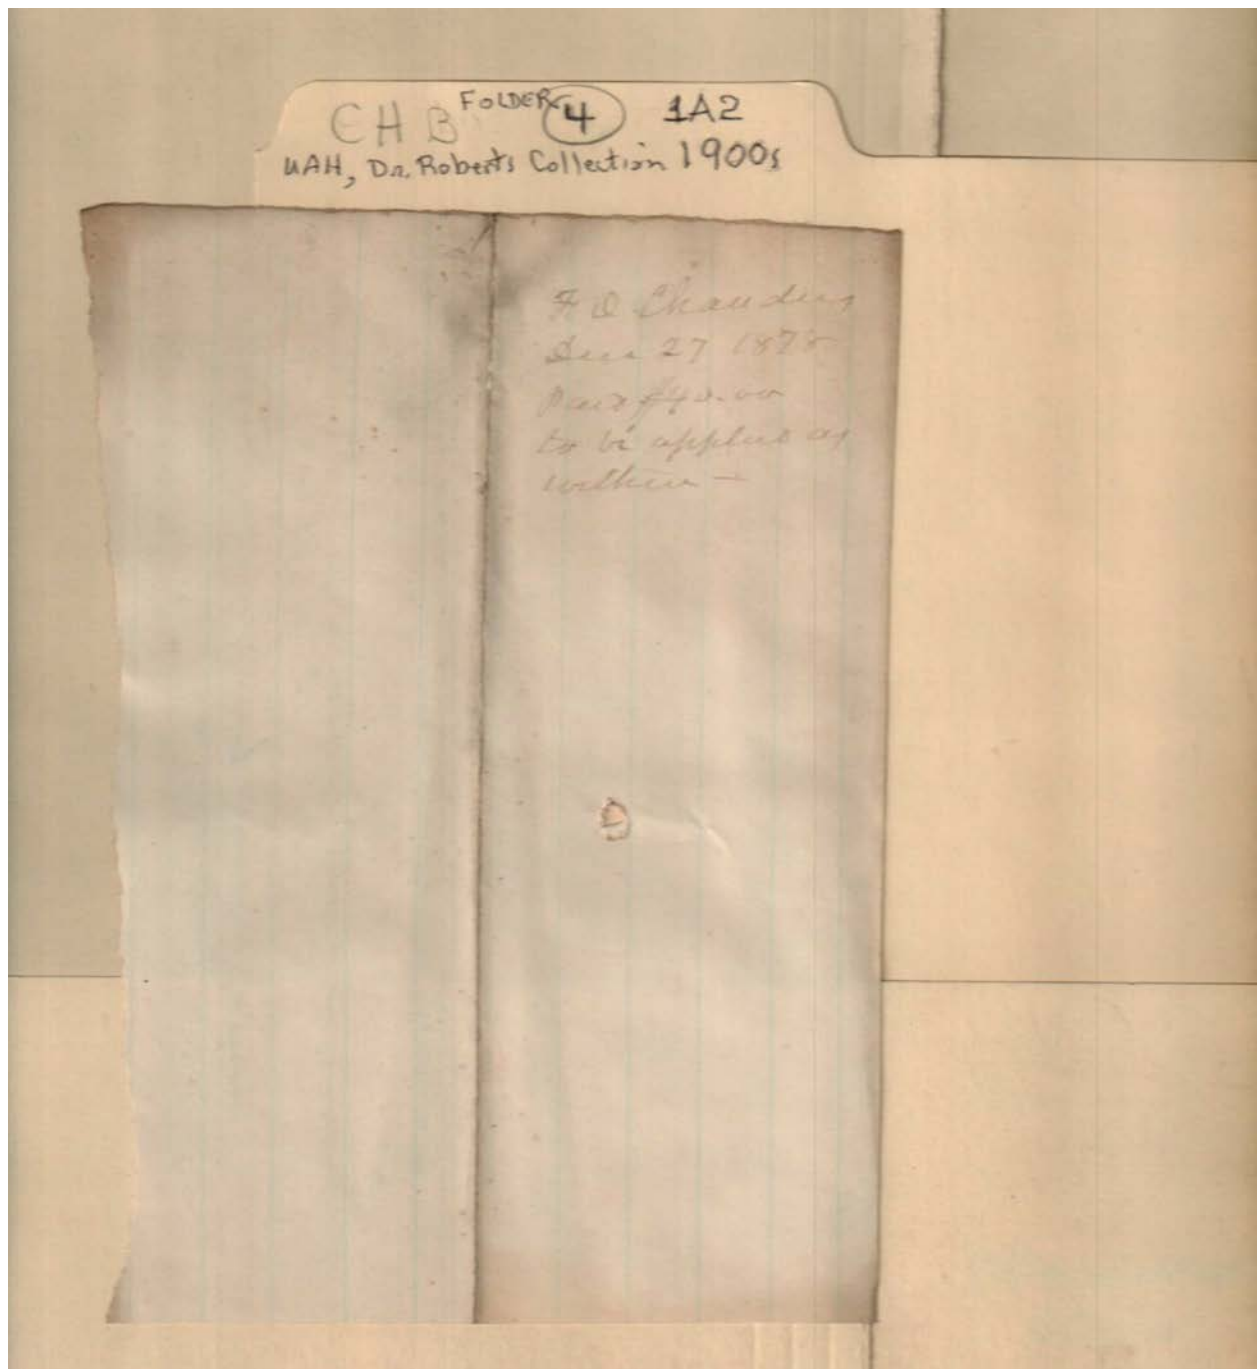 CHB FOLDER 4 1A2
UAH, Dr. Roberts Collection 1900s
27 1878
Paid $40.00
to be applied as
within —